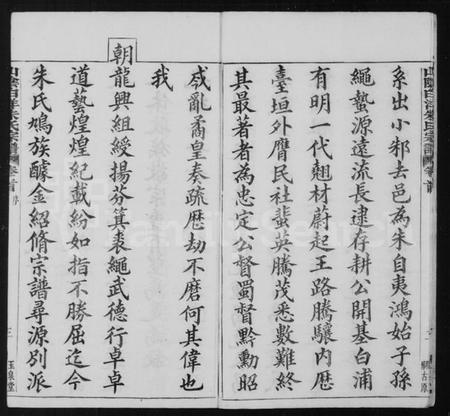 系出小邾去邑為朱自夷鴻始子孫
繩蟄源遠流長逮存耕公開基白浦
有明一代翹材蔚起王路騰驤內歷
臺垣外膺民社蜚英騰茂悉數難終
其最著者為忠定公督蜀督黔勳昭
戡亂矞皇奏疏歷劫不磨何其偉也
我
朝龍興組綬揚芬箕裘繩武德行卓卓
道藝煌煌紀載紛如指不勝屈迄今
朱氏鳩族醵金紹脩宗譜尋源別派
山陰白洋朱氏宗譜
卷首
序
三
玉泉堂